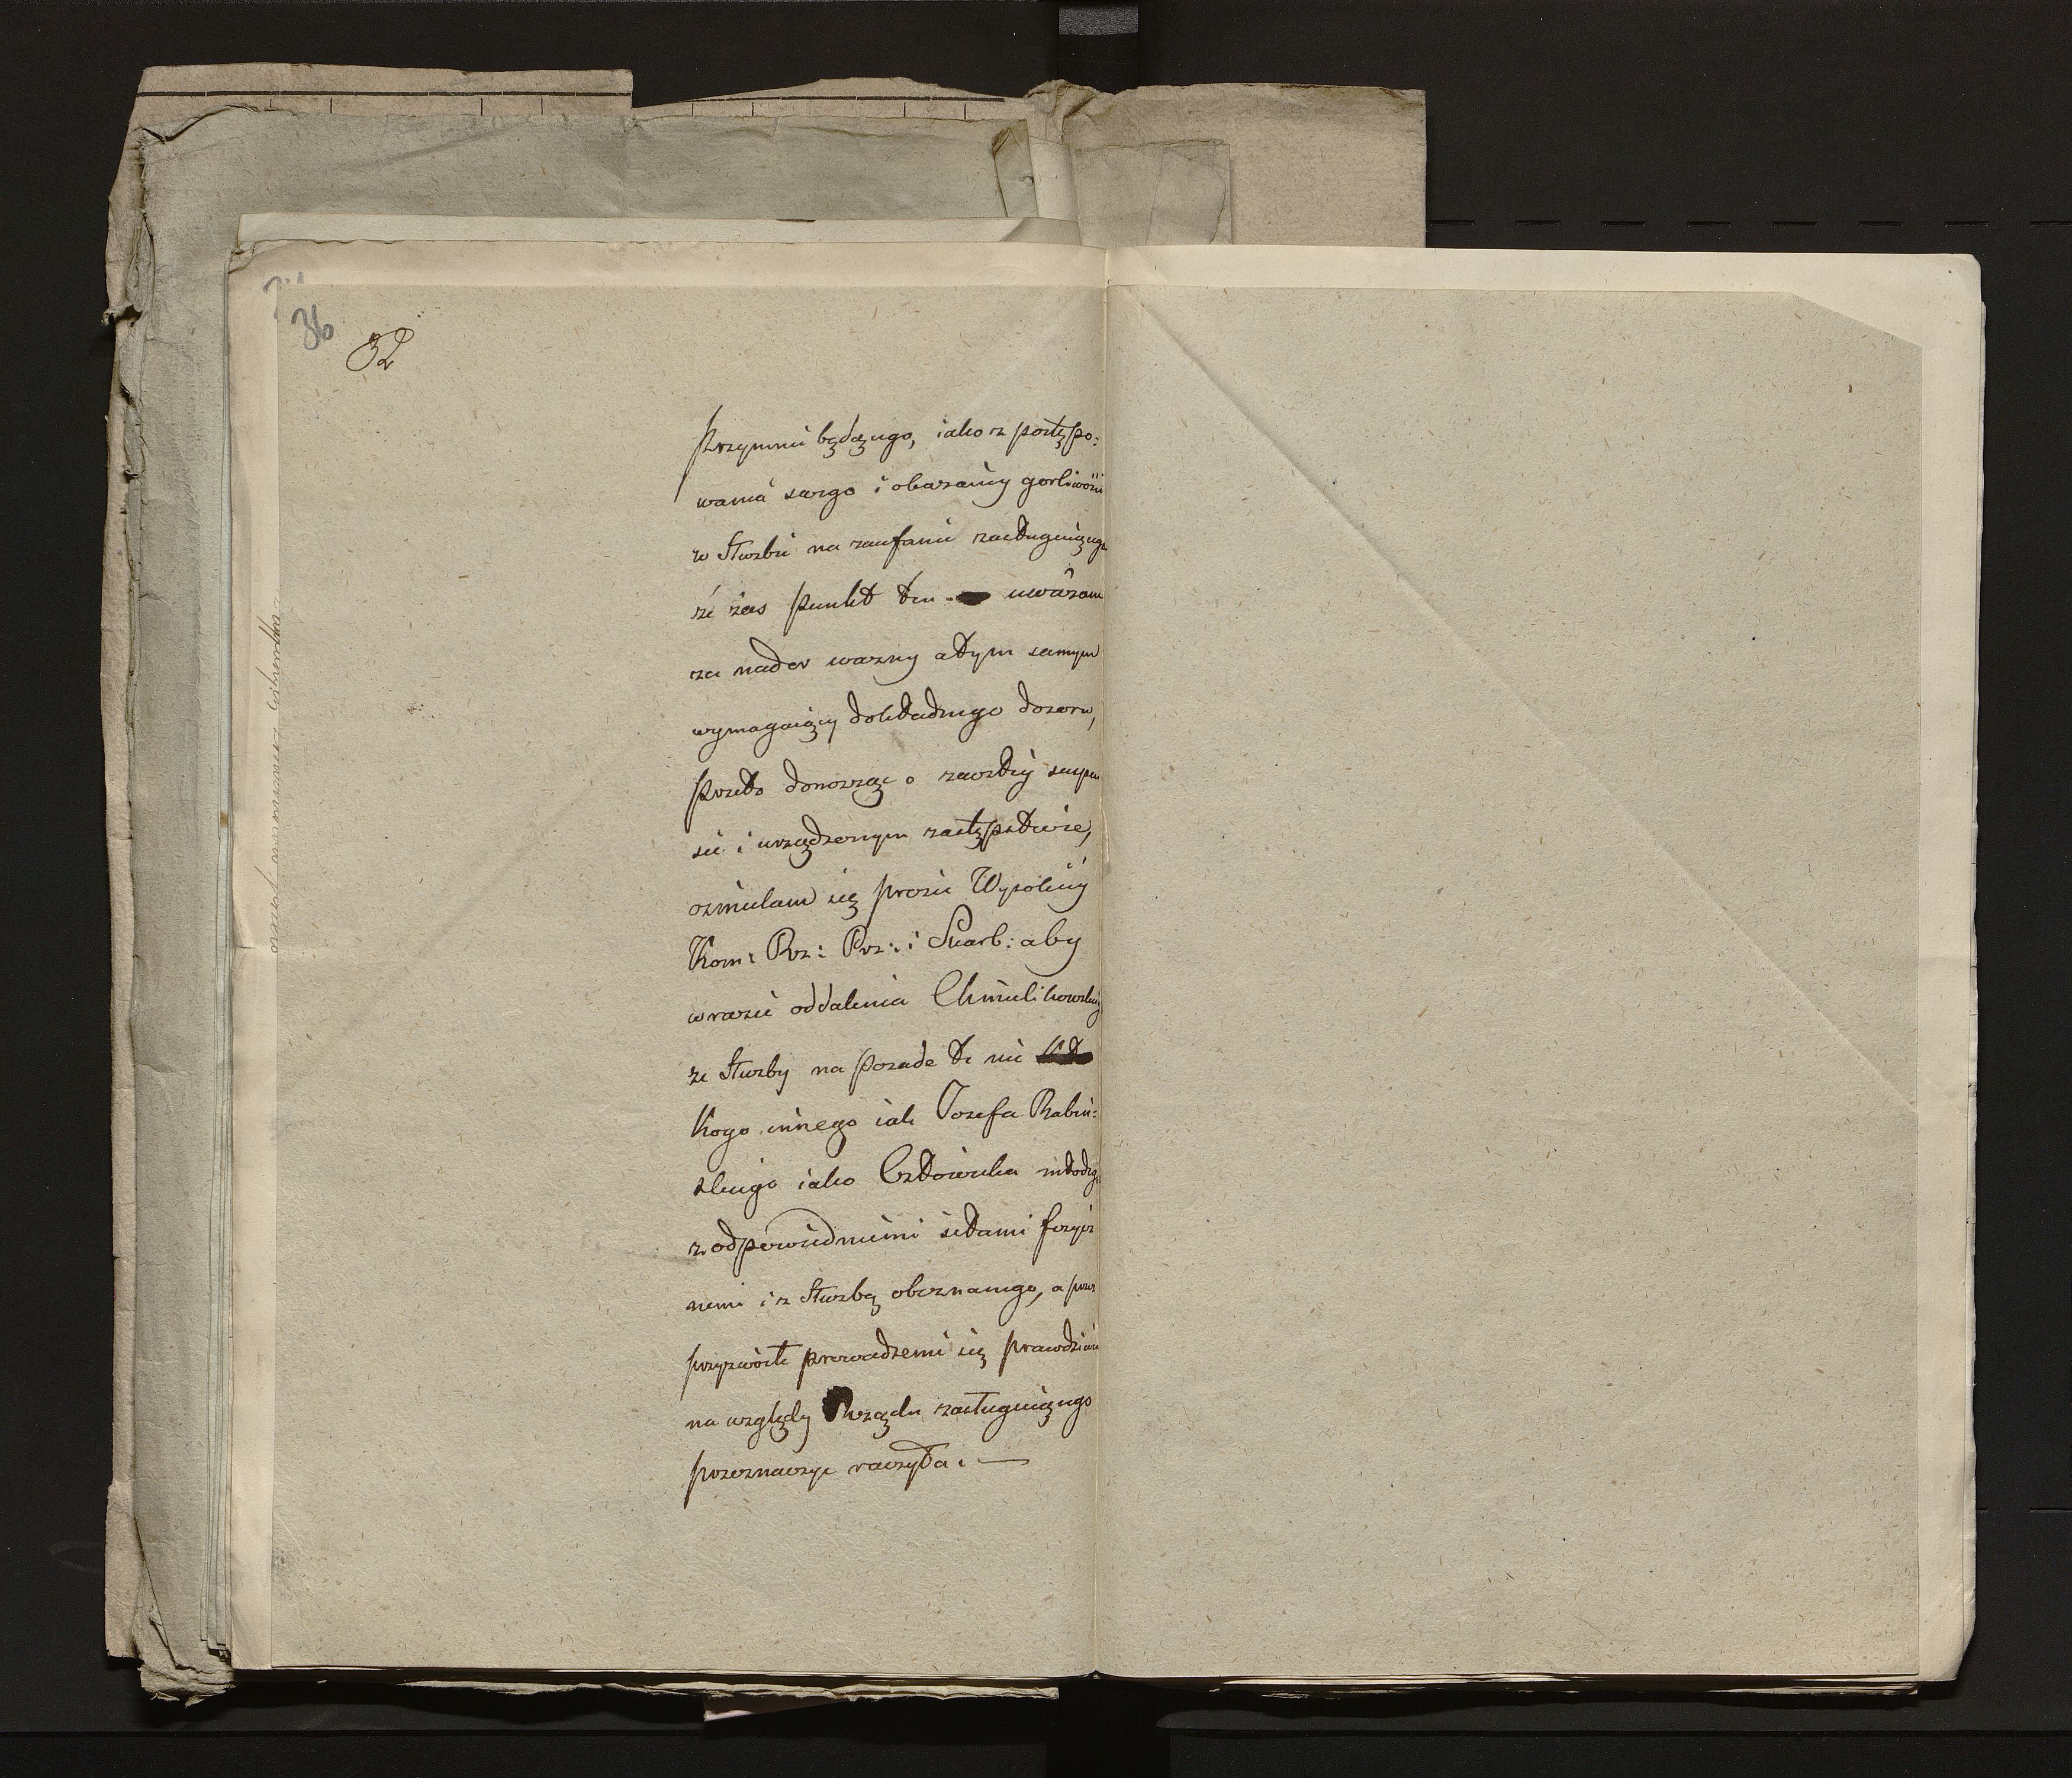 36
32
Przymnie będącego, iako z postępo:
wania swego i okazaney gorliwości
w Służbie na zaufanie zasługuiącego
że zaś Punkt ten uważam
za nader ważny a tym samym
wymagaiący dokładnego dozoru,
przeto donosząc o zaszłey suspen
sie i urządzonym zastępstwie,
ośmielam się prosić Wysokiey
Kom: Rz: Prz: i Skarb: aby
w razie oddalenia Chmielikowskiey
ze Służby na posade te nie
Kogo innego iak Jozefa Rabiń:
skiego iako Człowieka młodeg.
z odpowiedniemi siłami fizycz
nemi i z Służbą obeznanego, a przez
przyzwoite prowadzenie się prawdziwie
na względy Rządu zasługuiącego
przeznaczyć raczyła. —